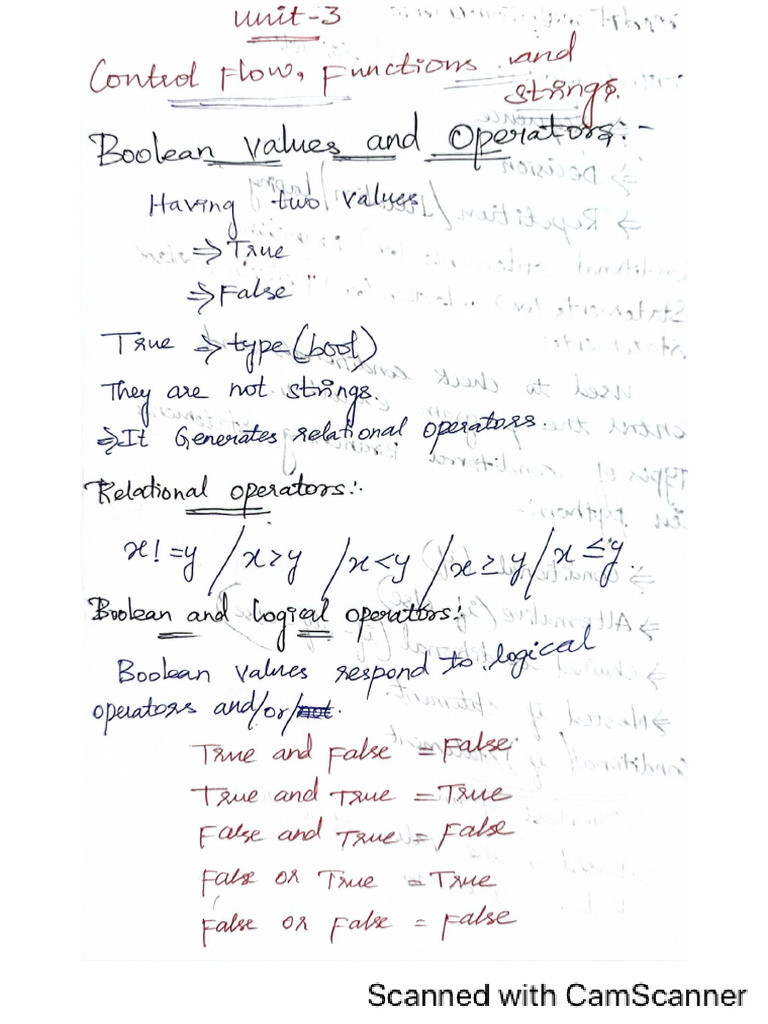 Unit-3
Control Flow, Functions and
strings.
Boolean values and Operators:-
Having two values
⇒ True
⇒ False
True ⇒ type(bool)
They are not strings.
⇒ It Generates relational operators.
Relational operators:-
x! =y / x>y / x<y / x≥y / x≤y.
Boolean and Logical operators:
Boolean values respond to logical
operators and/or/not.
True and False = False.
True and True = True
False and True = False
False or True = True
False or False = False
Scanned with CamScanner